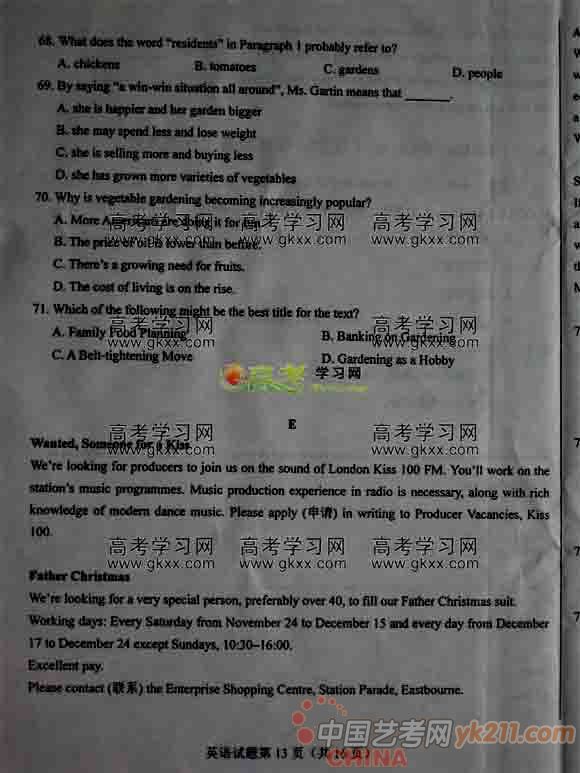 68. What does the word "residents" in Paragraph 1 probably refer to?
A. chickens B. tomatoes C. gardens D. people
69. By saying "a win-win situation all around", Ms. Gartin means that ______.
A. she is happier and her garden bigger
B. she may spend less and lose weight
C. she is selling more and buying less
D. she has grown more varieties of vegetables
70. Why is vegetable gardening becoming increasingly popular?
A. More Americans are doing it for fun.
高考学习网 高考学习网 高考学习网
B. The price of oil is lower than before.
www.gkxx.com www.gkxx.com www.gkxx.com
C. There's a growing need for fruits.
D. The cost of living is on the rise.
71. Which of the following might be the best title for the text?
高考学习网 高考学习网
A. Family Food Planning B. Banking on Gardening
www.gkxx.com www.gkxx.com
C. A Belt-tightening Move D. Gardening as a Hobby
高考 学习网
E
高考学习网 高考学习网
Wanted, Someone for a Kiss
www.gkxx.com www.gkxx.com
We're looking for producers to join us on the sound of London Kiss 100 FM. You'll work on the
station's music programmes. Music production experience in radio is necessary, along with rich
knowledge of modern dance music. Please apply (申请) in writing to Producer Vacancies, Kiss
100.
高考学习网 高考学习网 高考学习网
www.gkxx.com www.gkxx.com www.gkxx.com
Father Christmas
We're looking for a very special person, preferably over 40, to fill our Father Christmas suit.
Working days: Every Saturday from November 24 to December 15 and every day from December
17 to December 24 except Sundays, 10:30–16:00.
Excellent pay.
Please contact (联系) the Enterprise Shopping Centre, Station Parade, Eastbourne.
英语试题第 13 页（共 16 页）
中国艺考网 yk211.com
CHINA